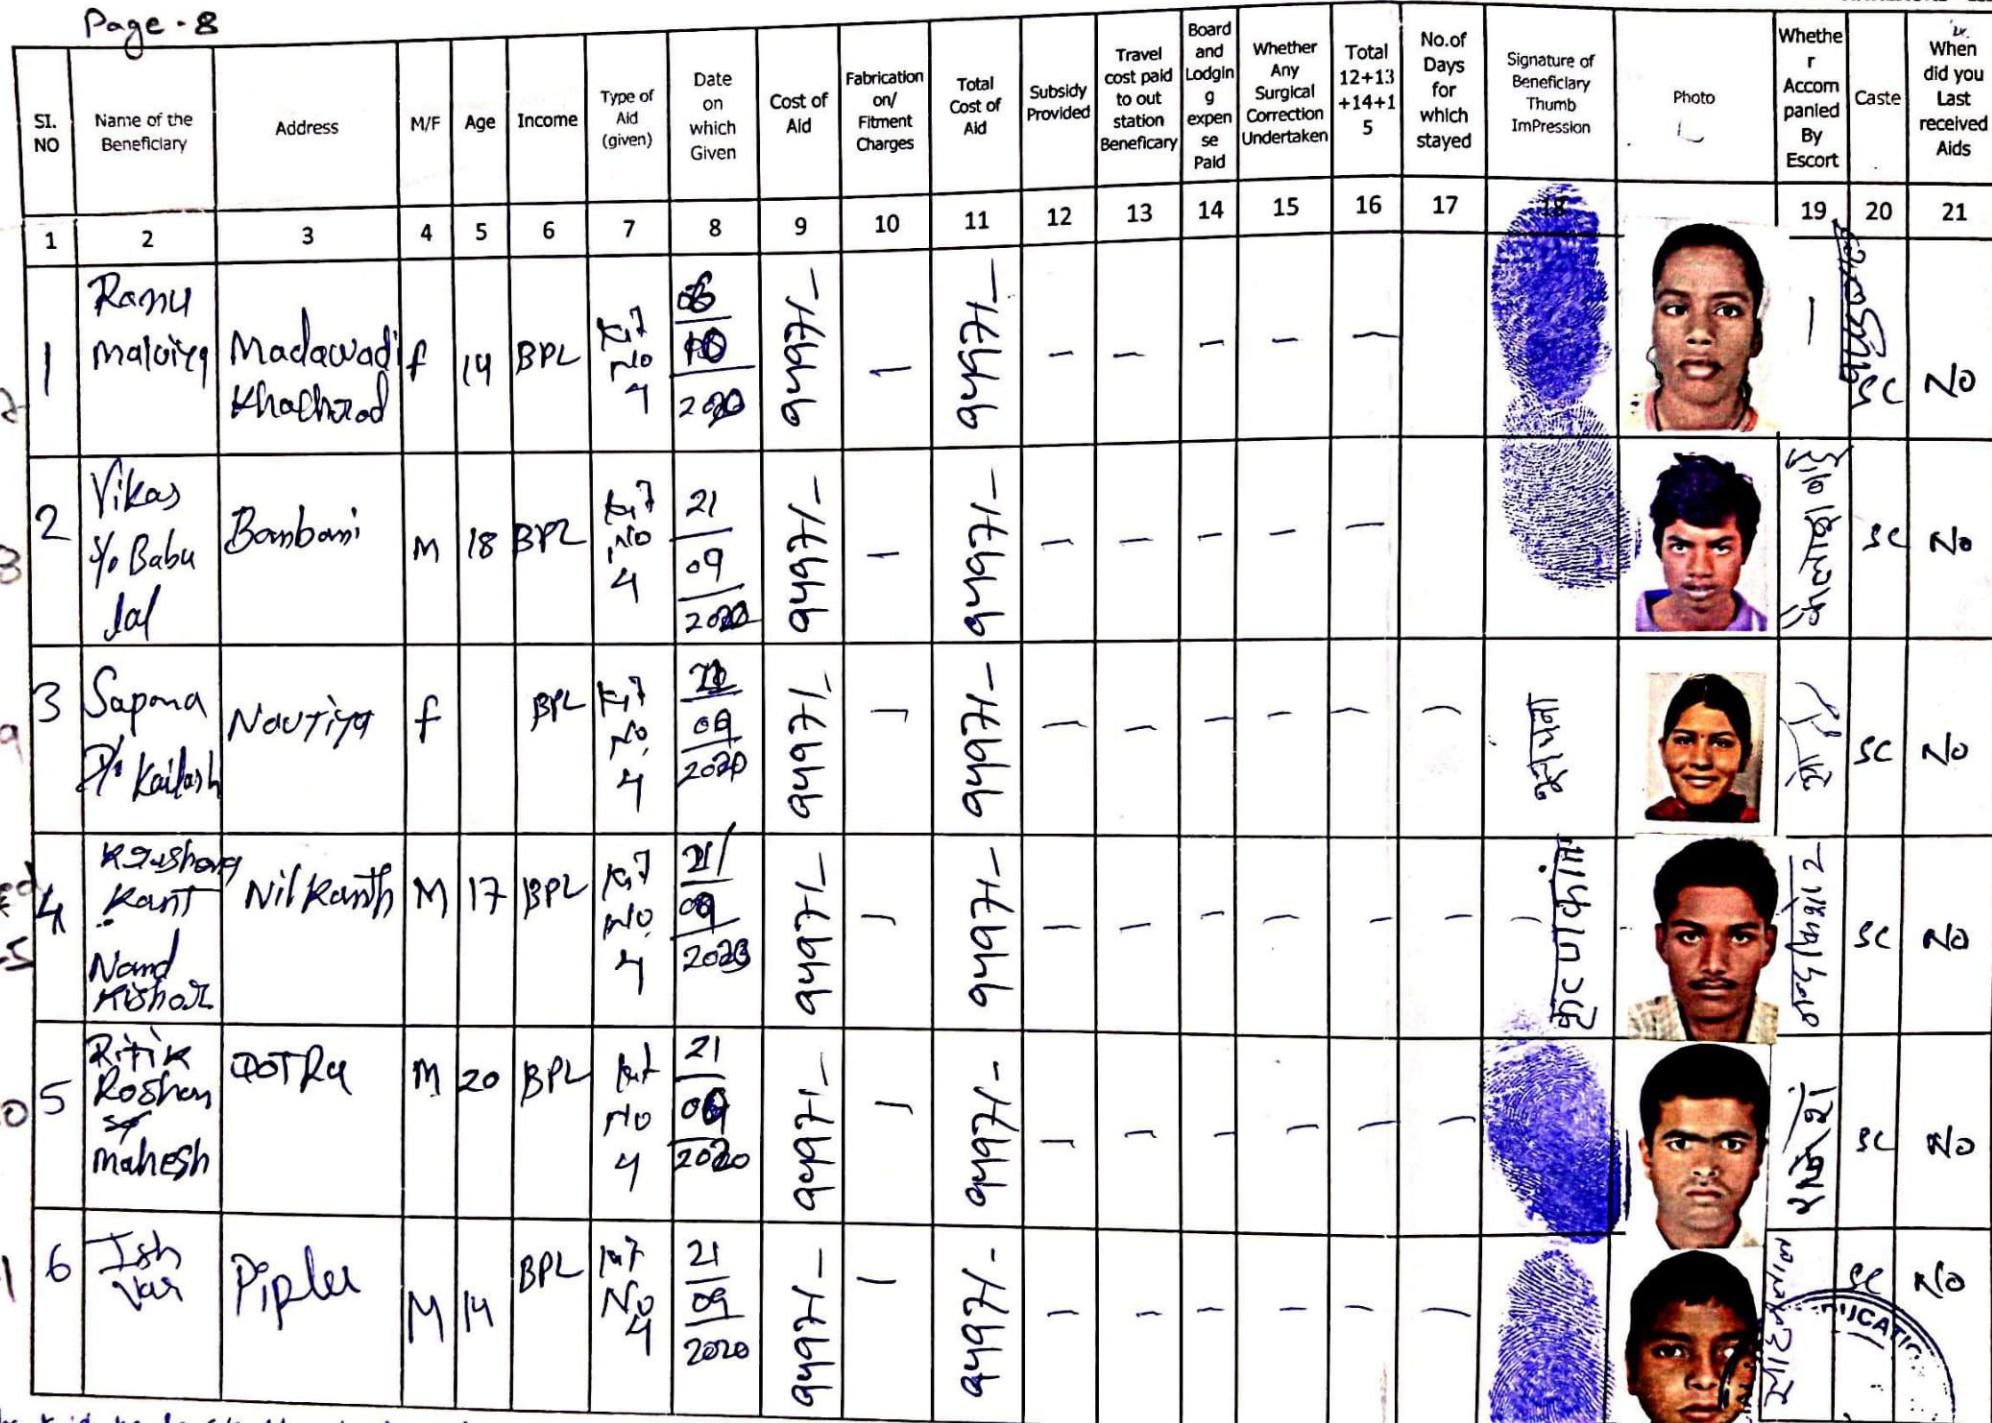 Page - 8
SI. NO
Name of the Beneficiary
Address
M/F
Age
Income
Type of Aid (given)
Date on which Given
Cost of Aid
Fabrication on/ Fitment Charges
Total Cost of Aid
Subsidy Provided
Travel cost paid to out station Beneficary
Board and Lodgin g expen se Paid
Whether Any Surgical Correction Undertaken
Total 12+13 +14+1 5
No.of Days for which stayed
Signature of Beneficiary Thumb ImPression
Photo
Whethe r Accom panied By Escort
Caste
When did you Last received Aids
1 2 3 4 5 6 7 8 9 10 11 12 13 14 15 16 17 18 19 20 21
1 Ranu malviya Madawadi Khachrod f 14 BPL Kit No 4 2020 9497/- — 9497/- — — — — — — SC No
2 Vikas S/o Babu lal Banbani M 18 BPL Kit No 4 21 09 2020 9497/- — 9497/- — — — — — SC No
3 Sapana D/o Kailash f BPL Kit No. 4 09 2020 9497/- — 9497/- — — — — — — सपना SC No
4 Kant Nand Kishor Nilkanth M 17 BPL Kit No 4 21/ 09 9497/- — 9497/- — — — — — — SC No
5 Ritik Roshan mahesh M 20 BPL Kit No 4 21 09 2020 9497/- — 9497/- — — — — — — SC No
6 Ish var Piplu M 14 BPL Kit No 4 21 09 2020 9497/- — 9497/- — — — — — — SC No